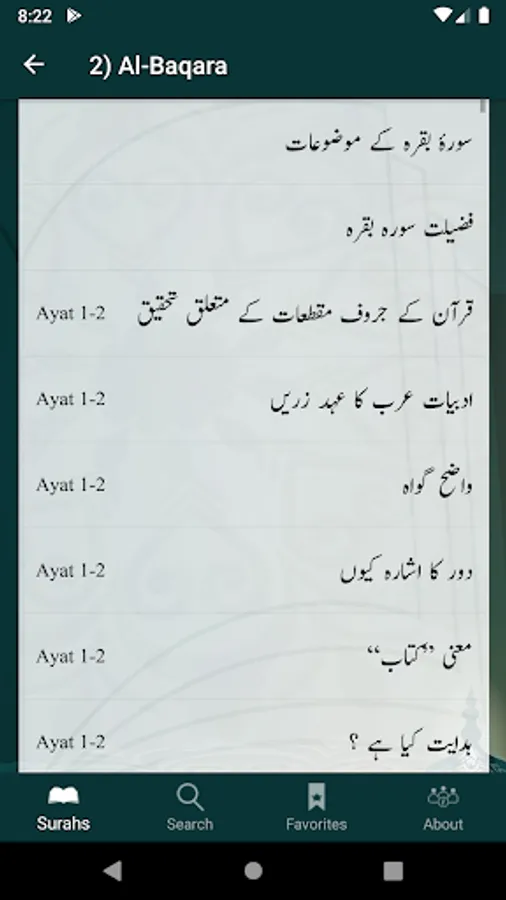 8:22
2) Al-Baqara
سورۂ بقرہ کے موضوعات
فضیلت سورہ بقرہ
قرآن کے حروف مقطعات کے متعلق تحقیق Ayat 1-2
ادبیات عرب کا عہد زریں Ayat 1-2
واضح گواہ Ayat 1-2
دور کا اشارہ کیوں Ayat 1-2
معنی ’’کتاب‘‘ Ayat 1-2
ہدایت کیا ہے ؟ Ayat 1-2
Surahs Search Favorites About